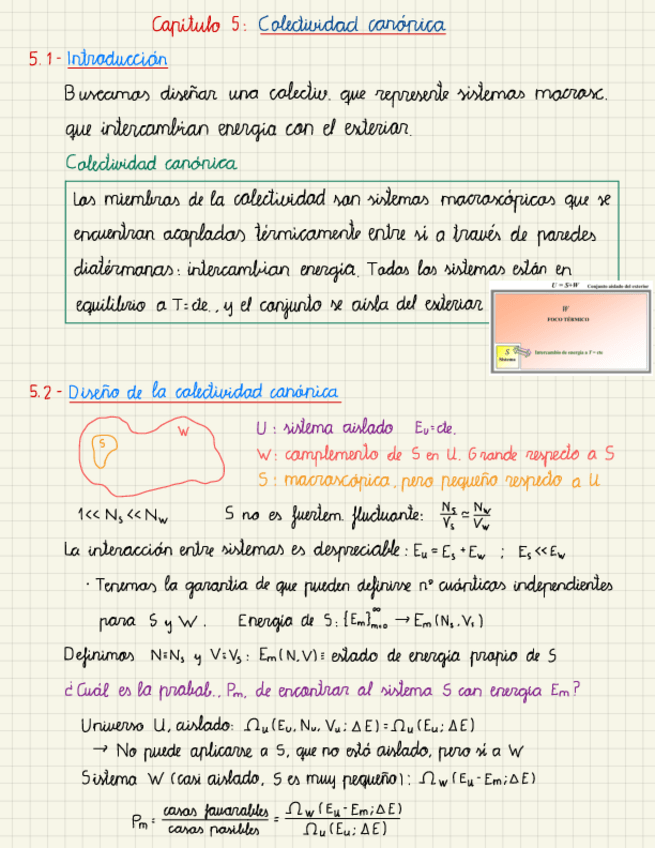 Capítulo 5: Colectividad canónica
5.1- Introducción
Buscamos diseñar una colectiv. que represente sistemas macrosc.
que intercambian energía con el exterior.
Colectividad canónica
Los miembros de la colectividad son sistemas macroscópicos que se
encuentran acoplados térmicamente entre sí a través de paredes
diatérmanas: intercambian energía. Todos los sistemas están en
equilibrio a T=cte., y el conjunto se aísla del exterior
U = S+W Conjunto aislado del exterior
W
FOCO TÉRMICO
S
Sistema
Intercambio de energía a T = cte
5.2- Diseño de la colectividad canónica
S
W
U: sistema aislado Eᵤ=cte.
W: complemento de S en U. Grande respecto a S
S: macroscópico, pero pequeño respecto a U
1<< Nₛ << N_W S no es fuertem. fluctuante: Nₛ/Vₛ ≃ N_W/V_W
La interacción entre sistemas es despreciable: Eᵤ = Eₛ + E_W ; Eₛ << E_W
· Tenemos la garantía de que pueden definirse nº cuánticos independientes
para S y W. Energía de S: {Em}_{m=0}^∞ → Em(Nₛ, Vₛ)
Definimos N≡Nₛ y V≡Vₛ: Em(N,V)≡ estado de energía propio de S
¿Cuál es la probab., Pm, de encontrar al sistema S con energía Em?
Universo U, aislado: Ωᵤ(Eᵤ, Nᵤ, Vᵤ; ΔE) = Ωᵤ(Eᵤ; ΔE)
→ No puede aplicarse a S, que no está aislado, pero sí a W
Sistema W (casi aislado, S es muy pequeño): Ω_W(Eᵤ-Em; ΔE)
Pm = casos favorables/casos posibles = Ω_W(Eᵤ-Em; ΔE)/Ωᵤ(Eᵤ; ΔE)